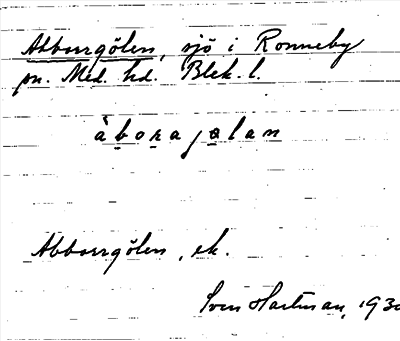 Abborrgölen, sjö i Ronneby
pn. Med. hd. Blek. l.
àboragølan
Abborrgölen, ek.
Sven Hartman, 1930